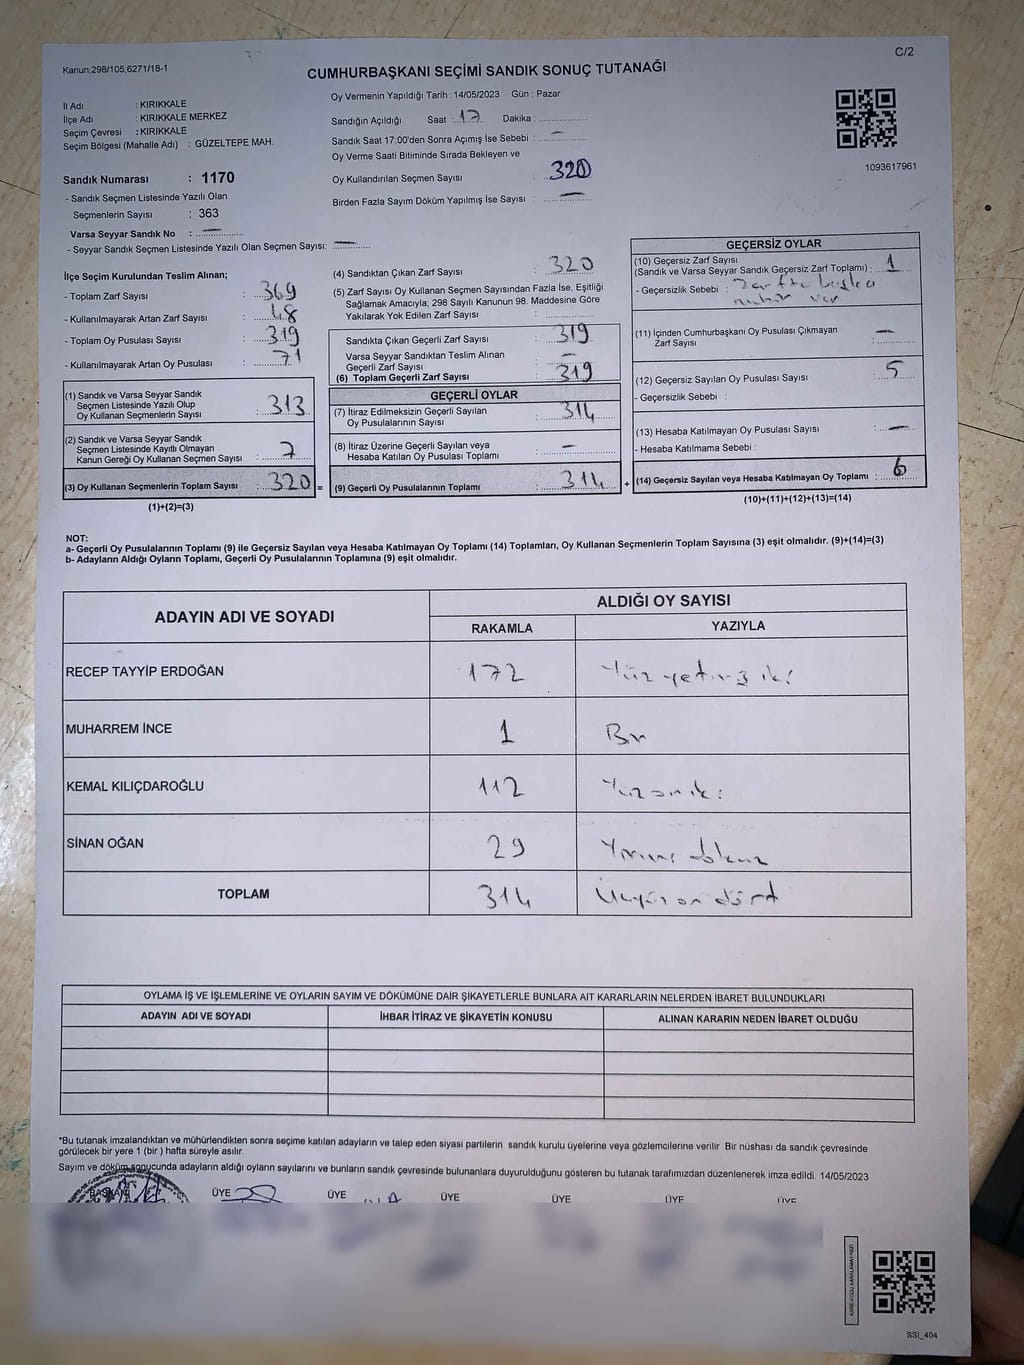 C/2
Kanun;298/105,6271/18-1
CUMHURBAŞKANI SEÇİMİ SANDIK SONUÇ TUTANAĞI
İl Adı : KIRIKKALE
İlçe Adı : KIRIKKALE MERKEZ
Seçim Çevresi : KIRIKKALE
Seçim Bölgesi (Mahalle Adı) : GÜZELTEPE MAH.
Sandık Numarası : 1170
- Sandık Seçmen Listesinde Yazılı Olan
Seçmenlerin Sayısı : 363
Varsa Seyyar Sandık No : —
- Seyyar Sandık Seçmen Listesinde Yazılı Olan Seçmen Sayısı: —
Oy Vermenin Yapıldığı Tarih : 14/05/2023 Gün : Pazar
Sandığın Açıldığı Saat : 17 Dakika :
Sandık Saat 17:00'den Sonra Açımış İse Sebebi : —
Oy Verme Saati Bitiminde Sırada Bekleyen ve
Oy Kullandırılan Seçmen Sayısı : 320
Birden Fazla Sayım Döküm Yapılmış İse Sayısı : —
1093617961
İlçe Seçim Kurulundan Teslim Alınan;
- Toplam Zarf Sayısı : 369
- Kullanılmayarak Artan Zarf Sayısı : 48
- Toplam Oy Pusulası Sayısı : 319
- Kullanılmayarak Artan Oy Pusulası : 71
(1) Sandık ve Varsa Seyyar Sandık
Seçmen Listesinde Yazılı Olup
Oy Kullanan Seçmenlerin Sayısı : 313
(2) Sandık ve Varsa Seyyar Sandık
Seçmen Listesinde Kayıtlı Olmayan
Kanun Gereği Oy Kullanan Seçmen Sayısı : 7
(3) Oy Kullanan Seçmenlerin Toplam Sayısı : 320 =
(1)+(2)=(3)
(4) Sandıktan Çıkan Zarf Sayısı : 320
(5) Zarf Sayısı Oy Kullanan Seçmen Sayısından Fazla İse, Eşitliği
Sağlamak Amacıyla; 298 Sayılı Kanunun 98. Maddesine Göre
Yakılarak Yok Edilen Zarf Sayısı :
Sandıkta Çıkan Geçerli Zarf Sayısı : 319
Varsa Seyyar Sandıktan Teslim Alınan
Geçerli Zarf Sayısı : —
(6) Toplam Geçerli Zarf Sayısı : 319
GEÇERLİ OYLAR
(7) İtiraz Edilmeksizin Geçerli Sayılan
Oy Pusulalarının Sayısı : 314
(8) İtiraz Üzerine Geçerli Sayılan veya
Hesaba Katılan Oy Pusulası Toplamı : —
(9) Geçerli Oy Pusulalarının Toplamı : 314 +
GEÇERSİZ OYLAR
(10) Geçersiz Zarf Sayısı
(Sandık ve Varsa Seyyar Sandık Geçersiz Zarf Toplamı) : 1
- Geçersizlik Sebebi : Zarfta başka
mühür var
(11) İçinden Cumhurbaşkanı Oy Pusulası Çıkmayan
Zarf Sayısı : —
(12) Geçersiz Sayılan Oy Pusulası Sayısı : 5
- Geçersizlik Sebebi :
(13) Hesaba Katılmayan Oy Pusulası Sayısı : —
- Hesaba Katılmama Sebebi :
(14) Geçersiz Sayılan veya Hesaba Katılmayan Oy Toplamı : 6
(10)+(11)+(12)+(13)=(14)
NOT:
a- Geçerli Oy Pusulalarının Toplamı (9) ile Geçersiz Sayılan veya Hesaba Katılmayan Oy Toplamı (14) Toplamları, Oy Kullanan Seçmenlerin Toplam Sayısına (3) eşit olmalıdır. (9)+(14)=(3)
b- Adayların Aldığı Oyların Toplamı, Geçerli Oy Pusulalarının Toplamına (9) eşit olmalıdır.
ADAYIN ADI VE SOYADI
ALDIĞI OY SAYISI
RAKAMLA YAZIYLA
RECEP TAYYİP ERDOĞAN 172 Yüzyetmişiki
MUHARREM İNCE 1 Bir
KEMAL KILIÇDAROĞLU 112 Yüzoniki
SİNAN OĞAN 29 Yirmi dokuz
TOPLAM 314 Üçyüz on dört
OYLAMA İŞ VE İŞLEMLERİNE VE OYLARIN SAYIM VE DÖKÜMÜNE DAİR ŞİKAYETLERLE BUNLARA AİT KARARLARIN NELERDEN İBARET BULUNDUKLARI
ADAYIN ADI VE SOYADI İHBAR İTİRAZ VE ŞİKAYETİN KONUSU ALINAN KARARIN NEDEN İBARET OLDUĞU
*Bu tutanak imzalandıktan ve mühürlendikten sonra seçime katılan adayların ve talep eden siyasi partilerin sandık kurulu üyelerine veya gözlemcilerine verilir. Bir nüshası da sandık çevresinde
görülecek bir yere 1 (bir ) hafta süreyle asılır.
Sayım ve döküm sonucunda adayların aldığı oyların sayılarını ve bunların sandık çevresinde bulunanlara duyurulduğunu gösteren bu tutanak tarafımızdan düzenlenerek imza edildi. 14/05/2023
BAŞKAN ÜYE ÜYE ÜYE ÜYE ÜYE ÜYE
KARE KODU KARALAMAYINIZ!
SSI_404